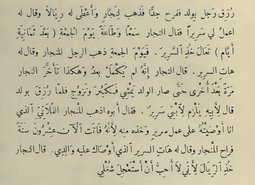 رُزِقَ رَجل بولد ففرح جدًّا فذهب لنَجّار وأَعْطَى له رِيَالاً وقال له
اعمل لي سَرِيراً فقال النجار سمعًا وطاعةً يوم الجمعة (بعد ثَمَانِيَة
أيّام) تَعَالَ خُذِ السَّرِيرَ. فيَوْمَ الجمعة ذهب الرجل للنجار وقال له
هات السرير. فقال النجار إنّه لم يَكْمُلْ بعدُ وهكذا تأخّرَ النجّار
مرّةً بعد أخرى حتَّى صار الولد يَمْشِي فيكبُرُ وتزوّج فلمّا رُزِقَ بولد
قال لأبيه يَلْزَمُ لابْنِي سَرِيرٌ. فقال أبوه اذهب للنجار الفُلاَنِيّ الّذي
انا أَوْصَيْتُهُ على عمل سرير وخذه منه لأنّه فاتت الآن عِشْرُونَ سَنَةً
فراح للنجار وقال له هات السرير الّذي أَوْصَاكَ عليه والِدِي. قال النجار
خُذِ الرِّيَالَ لأَنِّي لا أُحِبُّ أَنْ أَسْتَعْجِلَ شُغْلِي